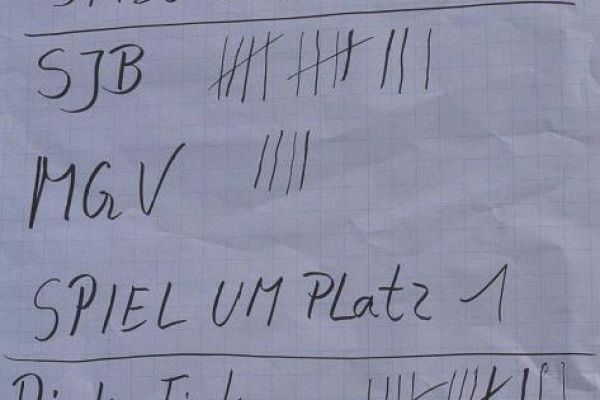 SJB
MGV
SPIEL UM PLatz 1